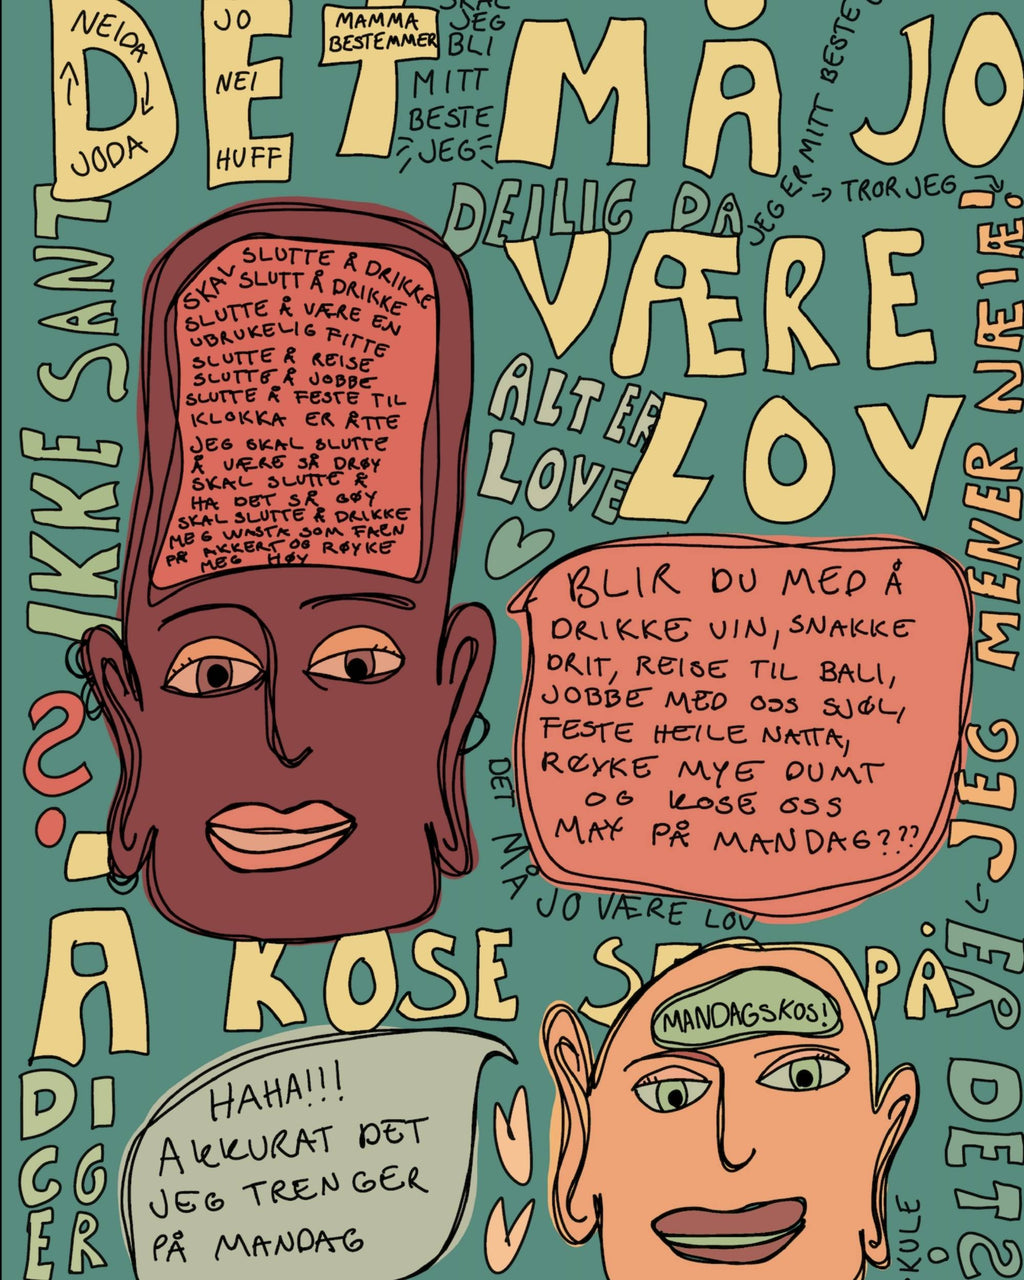 NEIDA
JODA
JO
NEI
HUFF
MAMMA
BESTEMMER
DET MÅ JO
SKAL
JEG
BLI
MITT
BESTE
JEG
JEG ER MITT BESTE
→ TROR JEG
DEILIG DA
VÆRE
ALT ER
LOVE
LOV
IKKE SANT
?
JEG MENER NÆIÆ!
SKAL SLUTTE Å DRIKKE
SLUTT Å DRIKKE
SLUTTE Å VÆRE EN
UBRUKELIG FITTE
SLUTTE Å REISE
SLUTTE Å JOBBE
SLUTTE Å FESTE TIL
KLOKKA ER ÅTTE
JEG SKAL SLUTTE
Å VÆRE SÅ DRØY
SKAL SLUTTE Å
HA DET SÅ GØY
SKAL SLUTTE Å DRIKKE
MEG WASTA SOM FAEN
PÅ AKKERT OG RØYKE
MEG HØY
BLIR DU MED Å
DRIKKE VIN, SNAKKE
DRIT, REISE TIL BALI,
JOBBE MED OSS SJØL,
FESTE HEILE NATTA,
RØYKE MYE DUMT
OG KOSE OSS
MAX PÅ MANDAG???
DET MÅ JO VÆRE LOV
Å KOSE PÅ
MANDAGSKOS!
HAHA!!!
AKKURAT DET
JEG TRENGER
PÅ MANDAG
DI
GG
ER
ER DET?
KULE